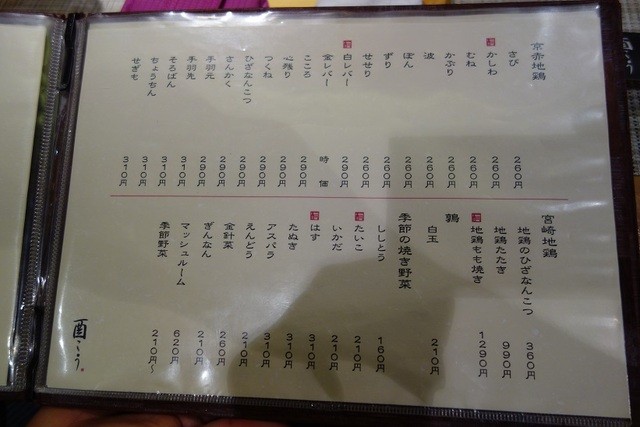 京赤地鶏
さび 260円
かしわ 260円
むね 260円
かぶり 260円
波 260円
ぽん 260円
ずり 260円
せせり 260円
白レバー 290円
金レバー 時価
こころ 290円
心残り 290円
つくね 290円
ひざなんこつ 290円
さんかく 290円
手羽元 290円
手羽先 310円
そろばん 310円
ちょうちん 310円
せぎも 310円
宮崎地鶏
地鶏のひざなんこつ 360円
地鶏たたき 990円
地鶏もも焼き 1290円
鶉
白玉 210円
季節の焼き野菜
ししとう 160円
たいこ 210円
いかだ 210円
はす 310円
たぬき 310円
アスパラ 310円
えんどう 210円
金針菜 260円
ぎんなん 210円
マッシュルーム 620円
季節野菜 210円〜
酉こう。